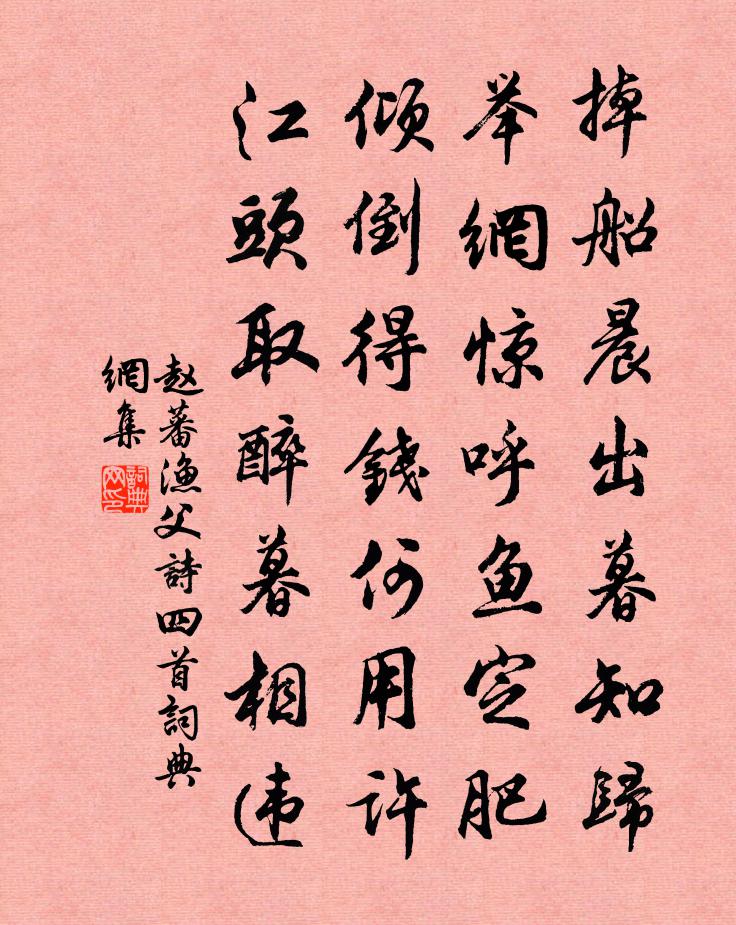 掉船晨出暮知歸
举網惊呼鱼定肥
倾倒得錢何用許
江頭取醉暮相违
赵蕃漁父詩四首詞典
網集
詞典
网印